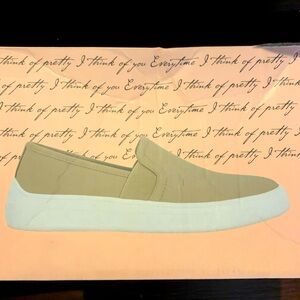 k of pretty I think of you Everytime I think of pretty I th
of pretty I think of you Everytime I think of pretty I think of
ink of pretty I think of you Everytime I think of pretty I thin
of pretty I think of you Everytime I think of pretty I think
nk of pretty I think of you Everytime I think of pretty I think
of pretty I think of you Ev I think of pretty I